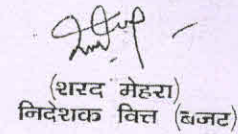 (शरद मेहरा)
निदेशक वित्त (बजट)